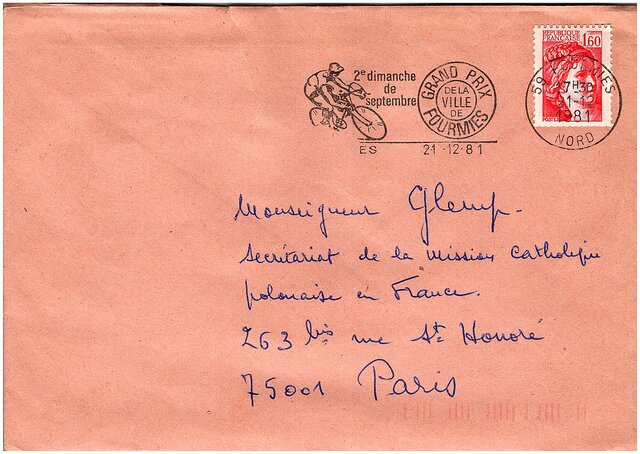 2e dimanche
de
septembre
GRAND PRIX
DE LA
VILLE
DE
FOURMIES
ES 21-12-81
REPUBLIQUE
FRANÇAISE 1,60
59 FOURMIES
17H30
21-12
1981
NORD
Monseigneur Glemp.
Secrétariat de la Mission Catholique
polonaise en France.
263 bis rue St Honoré
75001 Paris